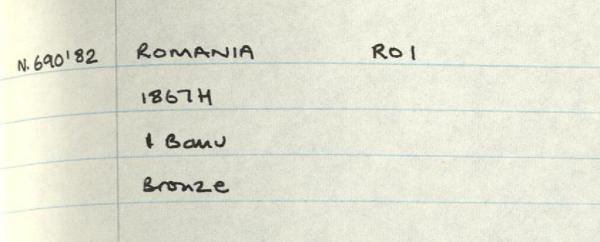 N.690'82 ROMANIA RO1
1867H
1 Banu
Bronze